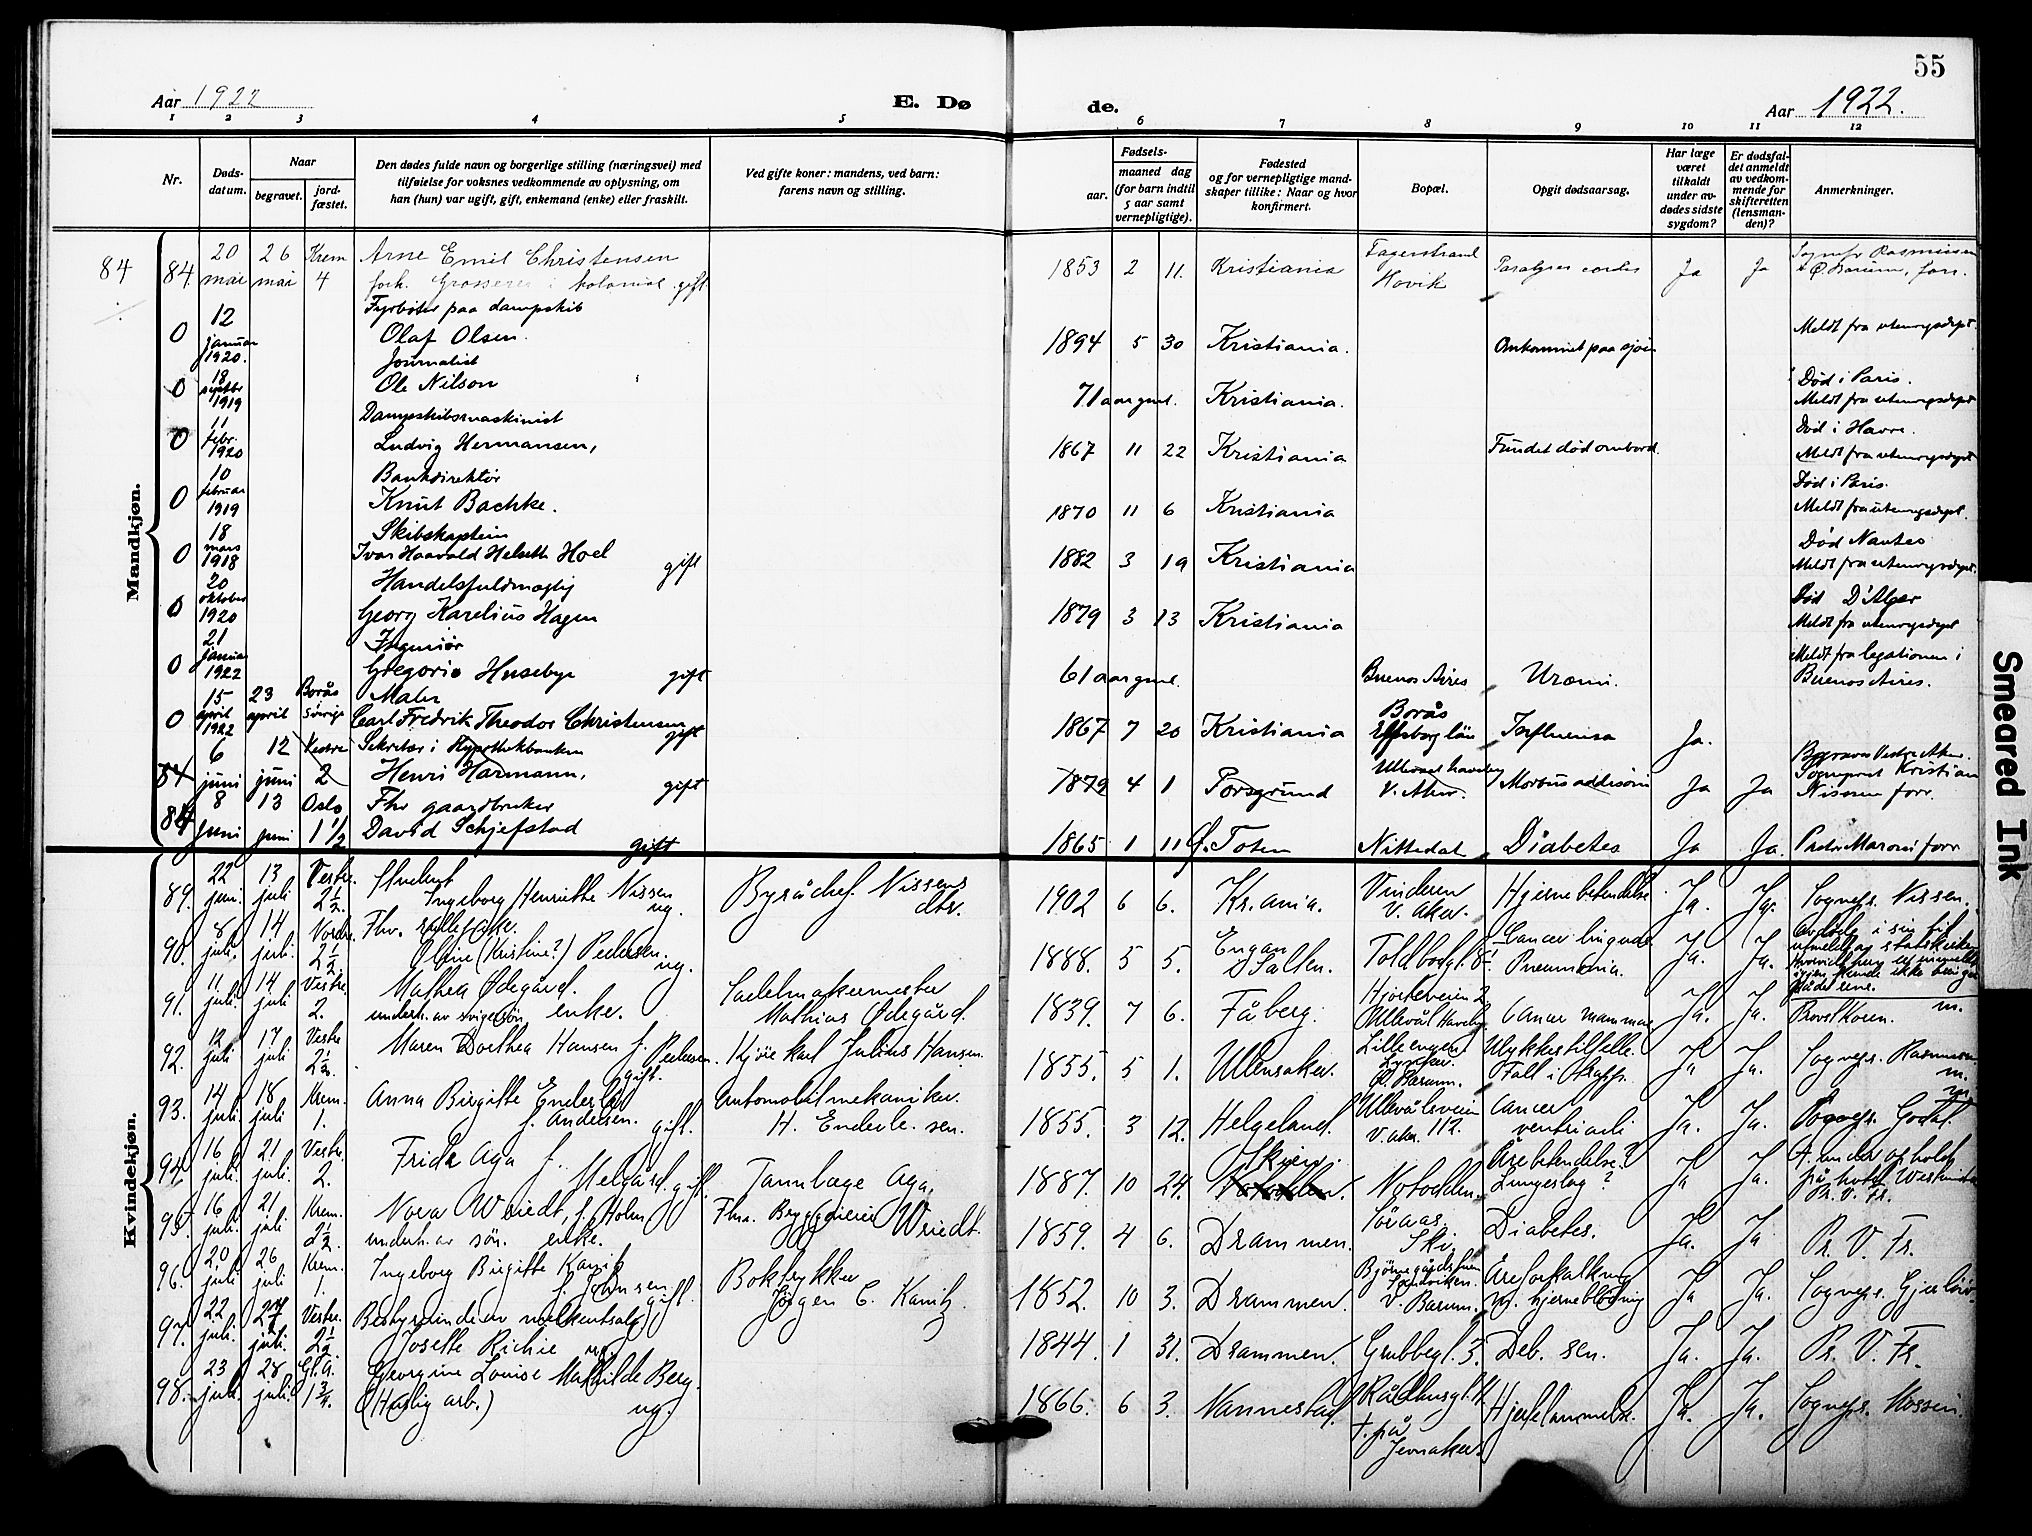 55
Aar 1922
E. Dø
de.
Aar 1922.
1 2 3 4 5 6 7 8 9 10 11 12
Nr.
Dødsdatum.
Naar
begravet.
jordfæstet.
Den dødes fulde navn og borgerlige stilling (næringsvei) med
tilføielse for voksnes vedkommende av oplysning, om
han (hun) var ugift, gift, enkemand (enke) eller fraskilt.
Ved gifte koner: mandens, ved barn:
farens navn og stilling.
Fødsels-
aar.
maaned dag
(for barn indtil
5 aar samt
vernepligtige).
Fødested
og for vernepligtige mandskaper tillike: Naar og hvor
konfirmert.
Bopæl.
Opgit dødsaarsag.
Har læge
været
tilkaldt
under avdødes sidste
sygdom?
Er dødsfaldet anmeldt
av vedkommende for
skifteretten
(lensmanden)?
Anmerkninger.
Mandkjøn.
84 84 20 mai 26 mai Krem 4 Arne Emil Christensen
forh. Grosserer i kolonial gift 1853 2 11. Kristiania Fagerstrand Hovik Paralyses cordis Ja Ja Sognepr Rasmussen
0 12 januar 1920. Fyrbøter paa dampskib
Olaf Olsen. 1894 5 30 Kristiania. Omkommet paa sjøen Meldt fra utenrigsdept.
0 18 septbr 1919 Journalist
Ole Nilson 71 aar gml. Kristiania. Død i Paris.
Meldt fra utenrigsdept
0 11 febr. 1920 Dampskibsmaskinist
Ludvig Hermansen, 1867 11 22 Kristiania Fundet død ombord. Død i Havre.
Meldt fra utenrigsdept
0 10 februar 1919 Bankdirektør
Knut Bachke. 1870 11 6 Kristiania Død i Paris.
Meldt fra utenrigsdept.
0 18 mars 1918 Skibskaptein
Ivar Haavald Helseth Hoel gift 1882 3 19 Kristiania Død Nantes
Meldt fra utenrigsdept.
0 20 oktober 1920 Handelsfuldmægtig
Georg Karelius Hagen 1879 3 13 Kristiania Død D'Alger
Meldt fra utenrigsdept
0 21 januar 1922 Ingeniør
Gregorio Husebye gift 61 aar gml. Buenos Aires Uræmi. Meldt fra legationen i
Buenos Aires.
0 15 april 1922 23 april Borås Sverige Maler
Carl Fredrik Theodor Christensen gift 1867 7 20 Kristiania Borås Elfsborg län Influensa Ja.
84 6 juni 12 juni Vestre 2 Sekretær i Hypothekbanken
Henri Harmann, gift 1879 4 1 Porsgrund Ullevaal haveby V. Aker. Morbus addisoni Ja Ja Begraves Vestre Aker.
Sogneprst Kristian
Nissen forr.
84 8 juni 13 juni Oslo 1 1/2 Fhv gaardbruker
David Schjefstad gift 1865 1 11 Ø. Toten Nittedal Diabetes Ja Ja. Pastor Maroni forr
Kvindekjøn.
89. 22 juni. 13 juli Vestre. 2 1/2. Student
Ingeborg Henriette Nissen ug. Byråchef Nissens dtr. 1902 6 6. Kr.ania. Vinderen V. Aker. Hjernebetendelse Ja. Ja. Sognepr. Nissen.
90. 8 juli. 14 juli. Nordre. 2 1/2 Fhv.
Oline (Kristine?) Pedersen ug. 1888. 5 5. Engan Salten. Toldbodgt. 8 Cancer linguae
Pneumonia. Ja. Ja. avdøde i sin tid
utmeldt av statskirken
91. 11 juli. 14 juli Vestre. 2. Mathea Ødegård.
underh. av svigersøn enke. Sadelmakermester
Mathias Ødegård. 1839. 7 6. Fåberg. Hjorteveien 2
Ullevål Haveby. Cancer mammae Ja. Ja. Provst Koren. m.
92. 12 juli 17 juli Vestre 2 1/2. Maren Dorthea Hansen f. Pedersen. gift. Kjørekarl Julius Hansen. 1855. 5 1. Ullensaker. Lilleengen
Ø. Bærum. Ulykkestilfelle.
Fall i trapp. Ja Ja. Sognepr. Rasmussen m.
93. 14 juli. 18 juli Krem. 1. Anna Birgitte Enderle
f. Andersen. gift. Automobilmekaniker
H. Enderle sen. 1855. 3 12. Helgeland. Ullevålsveien
V. aker 112. Cancer
ventriculi Ja. Ja. Sognepr. Godal. m
94. 16 juli. 21 juli. Vestre. 2. Frida Aga f.
Melgård. gift. Tannlæge Aga. 1887. 10 24. Skien.
Notodden. Notodden. Årebetendelse?
Lungeslag? Ja Ja. † under ophold
på hotel Westminster
Pr. V. Fr.
95. 16 juli 21 juli Krem. 2 1/2. Nora Wriedt, f. Holm
underh. av søn. enke. Fhv. Bryggerieier Wriedt. 1859. 4 6. Drammen. Søraas Ski. Diabetes. Ja. Ja Pr. V. Fr.
96. 20 juli 26 juli Krem. 1. Ingeborg Birgitte Kanitz
f. Johnsen. gift. Boktrykker
Jørgen C. Kanitz. 1852. 10 3. Drammen. Bjørnegårdsveien
Sandviken.
V. Bærum. Åreforkalkning
og hjerneblødning Ja Ja. Sognepr. Gjerløv.
97. 22 juli. 27 juli. Vestre. 2 1/2. Bestyrerinde av melkeutsalg
Josette Richie ug. 1844. 1 31. Drammen. Grubbegt. 3. Deb. sen. Ja. Ja. Pr. V. Fr.
98. 23 juli. 28 juli. Gl. A. 1 3/4. Georgine Louise Mathilde Berg.
(Huslig arb.) ug. 1866. 6 3. Nannestad. Rådhusgt.
† på
Jevnaker. Hjertelammelse. Ja. Ja. Sognepr. Mossin.
Smeared Ink